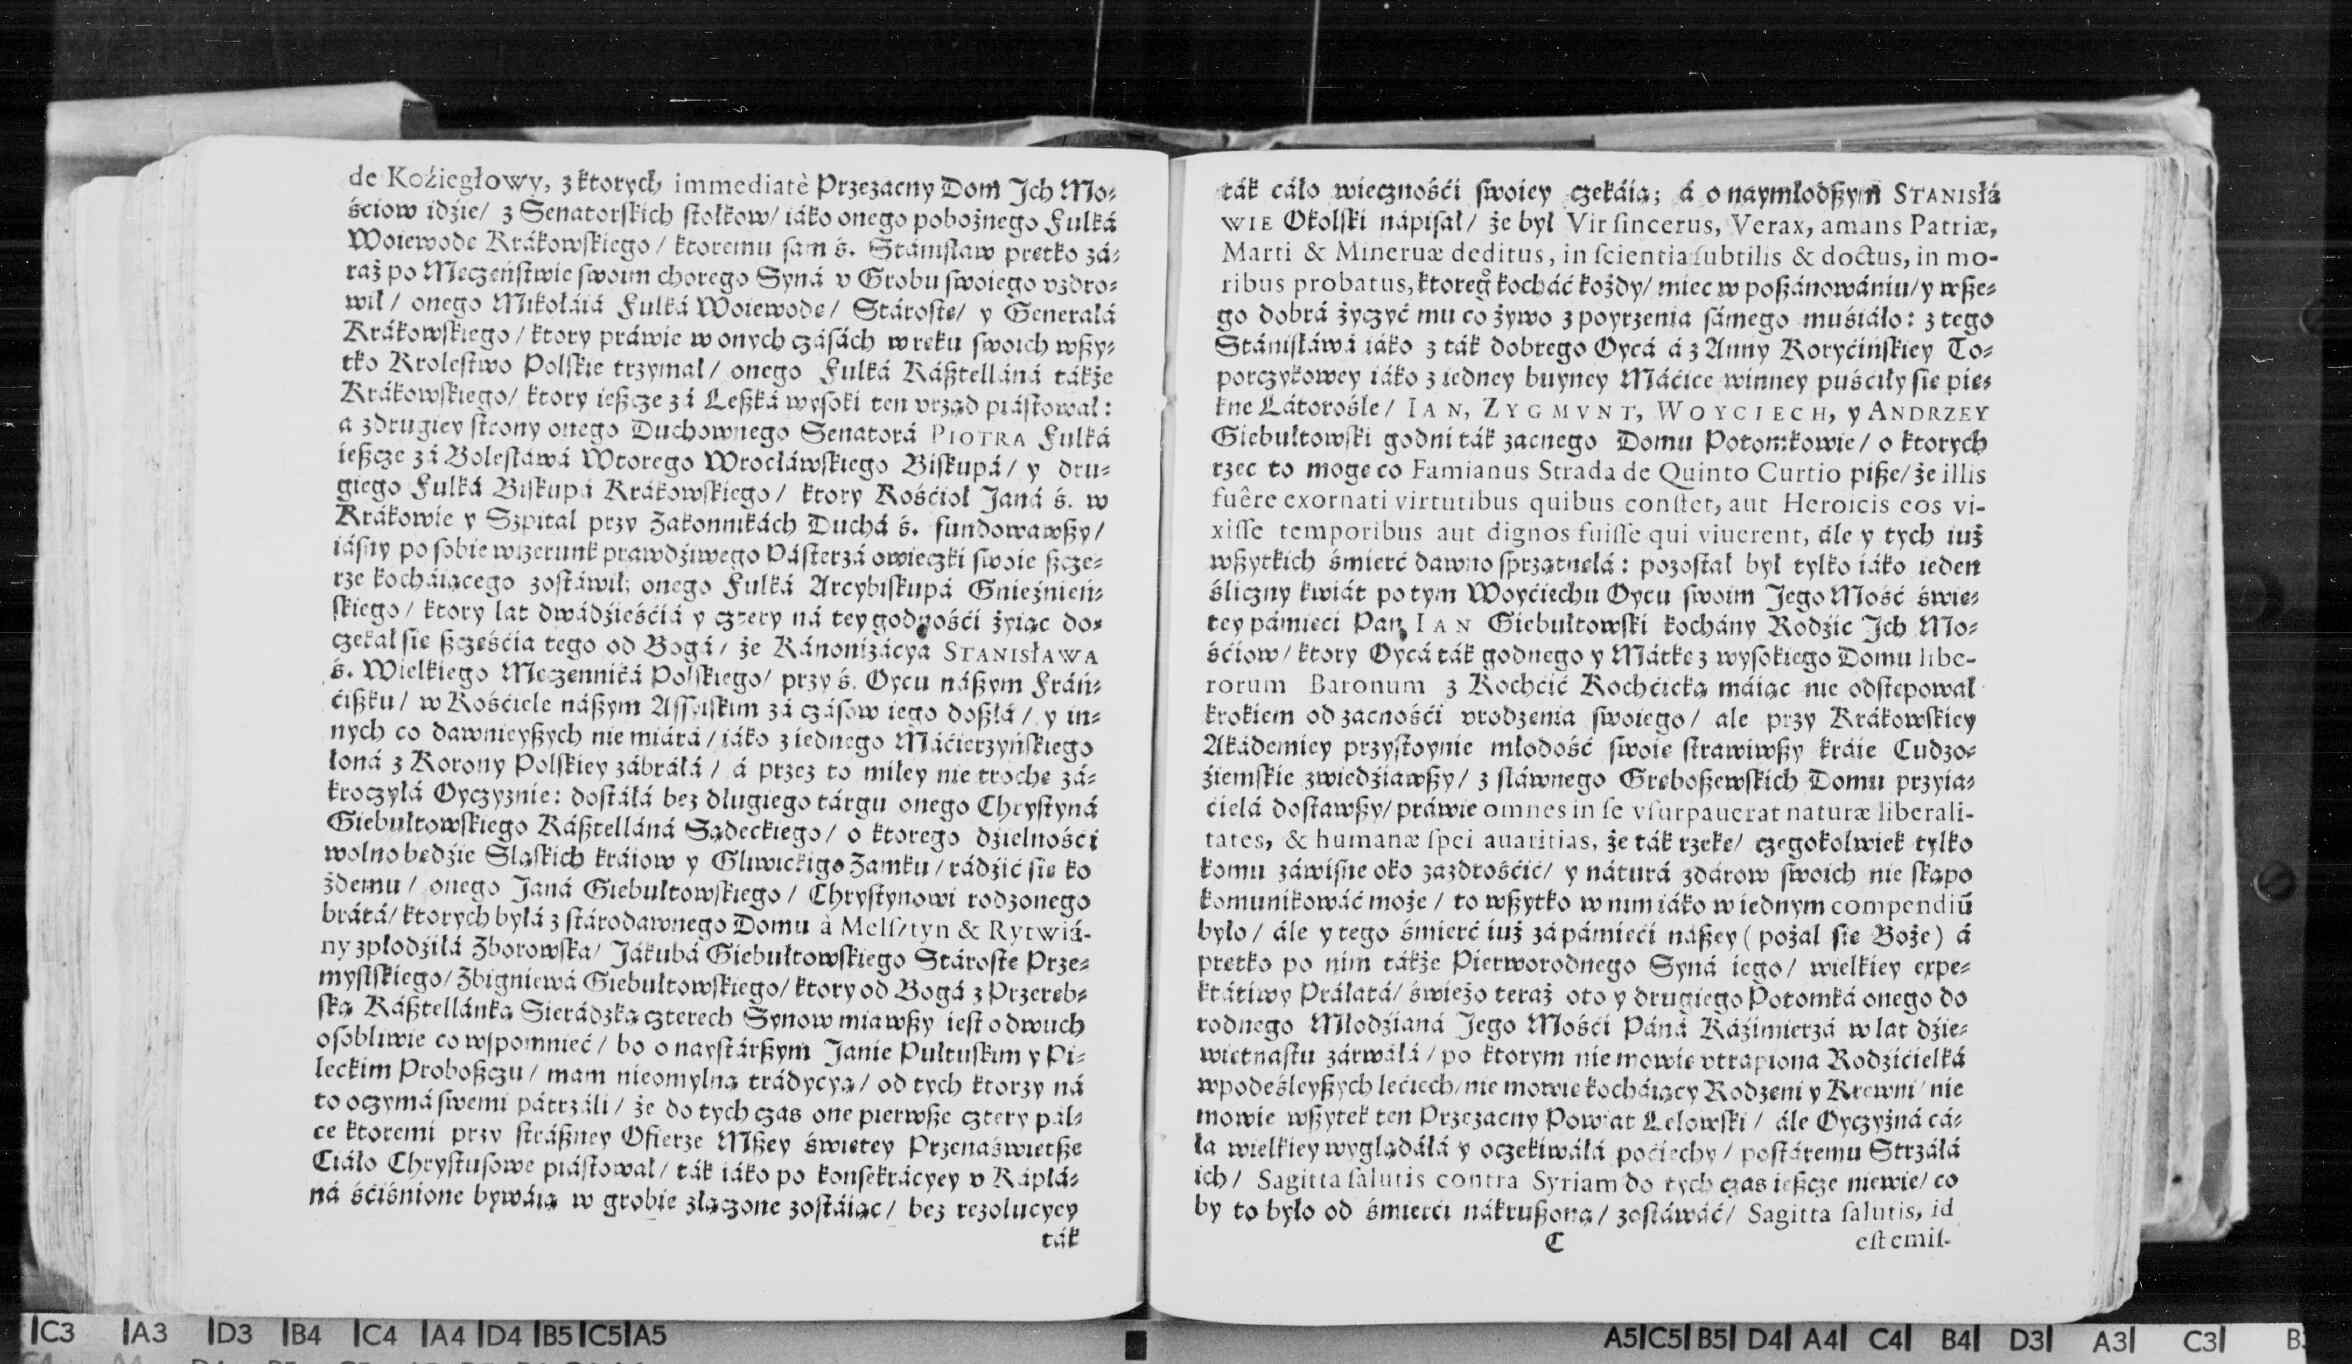 de Koźiegłowy, z ktorych immediatè Przezacny Dom Ich Mo-
śćiow idźie/ z Senatorskich stołkow/ iáko onego pobożnego Fulká
Woiewode Krákowskiego/ ktoremu sam ś. Stánisław prętko zá-
raz po Męczeństwie swoim chorego Syná v Grobu swoiego vzdro-
wił/ onego Mikołáiá Fulká Woiewode/ Stároste/ y Generałá
Krákowskiego/ ktory práwie w onych czásách w reku swoich wszy-
tko Krolestwo Polskie trzymał/ onego Fulká Kásztelláná tákże
Krákowskiego/ ktory ieszcze zá Leszká wysoki ten vrząd piástował:
a z drugiey strony onego Duchownego Senatorá PIOTRA Fulká
ieszcze zá Bolesłáwá Wtorego Wrocłáwskiego Biskupá/ y dru-
giego Fulká Biskupá Krákowskiego/ ktory Kośćioł Janá ś. w
Krákowie y Szpital przy Zakonnikách Duchá ś. fundowawszy/
iásny po sobie wizerunk prawdźiwego Pásterzá owieczki swoie szcze-
rze kocháiącego zostáwił; onego Fulká Arcybiskupá Gnieźnień-
skiego/ ktory lat dwádźieśćiá y cztery ná tey godnośći żyiąc do-
czekał sie szczęśćia tego od Bogá/ że Kánonizácya STANISŁAWA
ś. Wielkiego Męczenniká Polskiego/ przy ś. Oycu nászym Fráń-
ćiszku/ w Kośćiele nászym Assyiskim zá czásow iego doszłá/ y in-
nych co dawnieyszych nie miárá/ iáko z iednego Máćierzyńskiego
łoná z Korony Polskiey zábráłá/ á przez to miłey nie troche zá-
kroczyłá Oyczyznie: dostáłá bez długiego tárgu onego Chrystyná
Giebułtowskiego Kásztelláná Sądeckiego/ o ktorego dźielnośći
wolno będźie Sląskich kráiow y Gliwickigo Zamku/ rádźić sie ko
żdemu/ onego Janá Giebułtowskiego/ Chrystynowi rodzonego
brátá/ ktorych byłá z stárodawnego Domu à Melsztyn & Rytwiá-
ny zpłodźiłá Zborowska/ Jákubá Giebułtowskiego Stároste Prze-
myslskiego/ Zbigniewá Giebułtowskiego/ ktory od Bogá z Przereb-
ską Kásztellánką Sierádzką czterech Synow miawszy iest o dwuch
osobliwie co wspomnieć/ bo o naystárszym Janie Pułtuskim y Pi-
leckim Proboszczu/ mam nieomylną trádycyą/ od tych ktorzy ná
to oczymá swemi pátrzáli/ że do tych czas one pierwsze cztery pál-
ce ktoremi przy strászney Ofierze Mszey świetey Przenaświetsze
Ciáło Chrystusowe piástował/ ták iáko po konsekrácyey v Kápłá-
ná śćiśnione bywáią w grobie złączone zostáiąc/ bez rezolucyey
ták
ták cáło wiecznośći swoiey czekáią; á o naymłodszym STANISŁÁ
WIE Okolski nápisał/ że był Vir sincerus, Verax, amans Patriæ,
Marti & Mineruæ deditus, in scientia subtilis & doctus, in mo-
ribus probatus, ktoreg° kocháć kożdy/ miec w poszánowániu/ y wsze-
go dobrá życzyć mu co żywo z poyrzenia sámego muśiáło: z tego
Stánisłáwá iáko z ták dobrego Oycá á z Anny Koryćińskiey To-
porczykowey iáko z iedney buyney Máćice winney puśćiły sie pie-
kne Látorośle/ IAN, ZYGMVNT, WOYCIECH, y ANDRZEY
Giebułtowski godni ták zacnego Domu Potomkowie/ o ktorych
rzec to moge co Famianus Strada de Quinto Curtio pisze/ że illis
fuêre exornati virtutibus quibus constet, aut Heroicis eos vi-
xisse temporibus aut dignos fuisse qui viuerent, ále y tych iuż
wszytkich śmierć dawno sprzątnełá: pozostał był tylko iáko ieden
śliczny kwiát po tym Woyćiechu Oycu swoim Jego Mość świe-
tey pámieci Pan IAN Giebułtowski kochány Rodźic Ich Mo-
śćiow/ ktory Oycá ták godnego y Mátke z wysokiego Domu libe-
rorum Baronum z Kochćić Kochćicką máiąc nie odstepował
krokiem od zacnośći vrodzenia swoiego/ ale przy Krákowskiey
Akádemiey przystoynie młodość swoie strawiwszy kráie Cudzo-
źiemskie zwiedźiawszy/ z sławnego Greboszewskich Domu przyia-
ćielá dostawszy/ práwie omnes in se vsurpauerat naturæ liberali-
tates, & humanæ spei auaritias, że ták rzeke/ czegokolwiek tylko
komu záwisne oko zazdrośćić/ y náturá zdárow swoich nie skąpo
komunikowáć może/ to wszytko w nim iáko w iednym compendiū
było/ ále y tego śmierć iuż zá pámieći nászey (pożal sie Boże) á
pretko po nim tákże Pierworodnego Syná iego/ wielkiey expe-
ktátiwy Práłatá/ świeżo teraz oto y drugiego Potomká onego do
rodnego Młodźianá Jego Mośći Páná Káźimierzá w lat dźie-
wietnastu zárwáłá/ po ktorym nie mowie vtrapiona Rodźićielká
w podeśleyszych lećiech/ nie mowie kocháiący Rodzeni y Krewni/ nie
mowie wszytek ten Przezacny Powiat Lelowski/ ále Oyczyzná cá-
ła wielkiey wyglądáłá y oczekiwáłá poćiechy/ postáremu Strzáłá
ich/ Sagitta salutis contra Syriam do tych czas ieszcze niewie/ co
by to było od śmierci nákruszoną/ zostáwáć/ Sagitta salutis, id
C est emis-
C3 A3 D3 B4 C4 A4 D4 B5 C5 A5
A5 C5 B5 D4 A4 C4 B4 D3 A3 C3